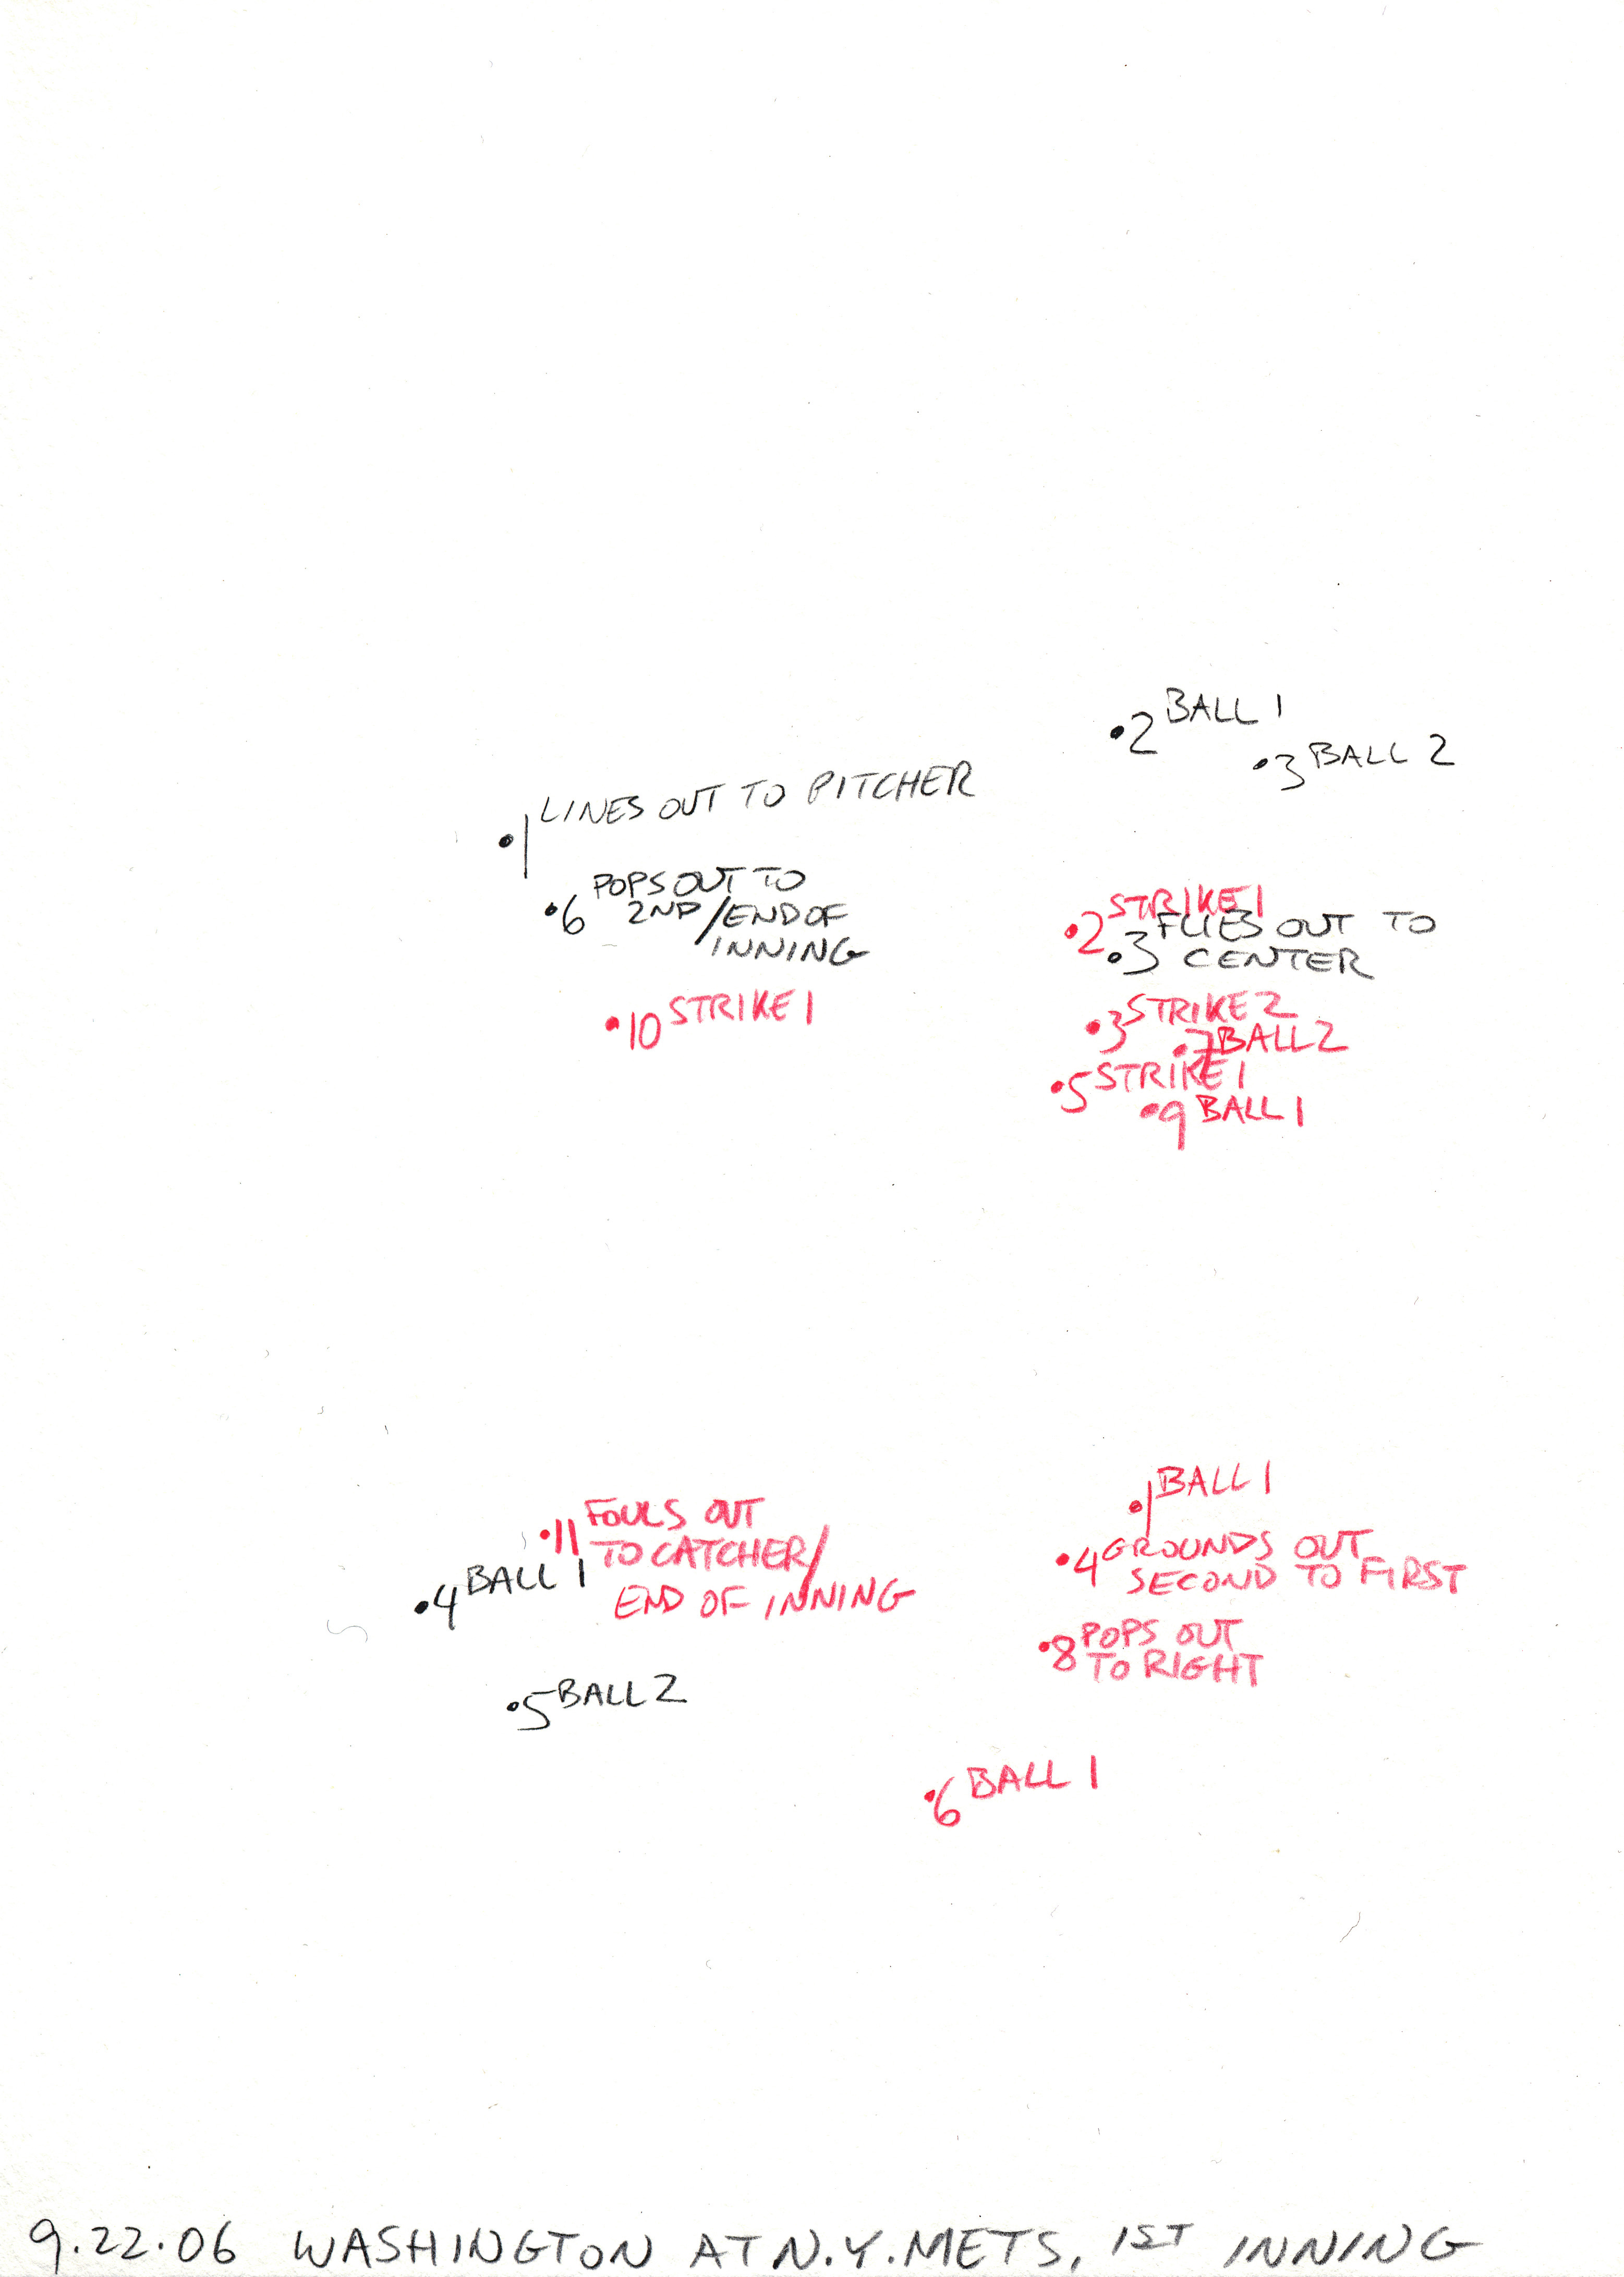 •2 BALL 1
•3 BALL 2
•1 LINES OUT TO PITCHER
•6 POPS OUT TO
2ND/END OF
INNING
•2 STRIKE 1
•3 FLIES OUT TO
CENTER
•10 STRIKE 1
•3 STRIKE 2
•7 BALL 2
•5 STRIKE 1
•9 BALL 1
•1 BALL 1
•11 FOULS OUT
TO CATCHER/
END OF INNING
•4 GROUNDS OUT
SECOND TO FIRST
•4 BALL 1
•8 POPS OUT
TO RIGHT
•5 BALL 2
•6 BALL 1
9.22.06 WASHINGTON AT N.Y. METS, 1ST INNING